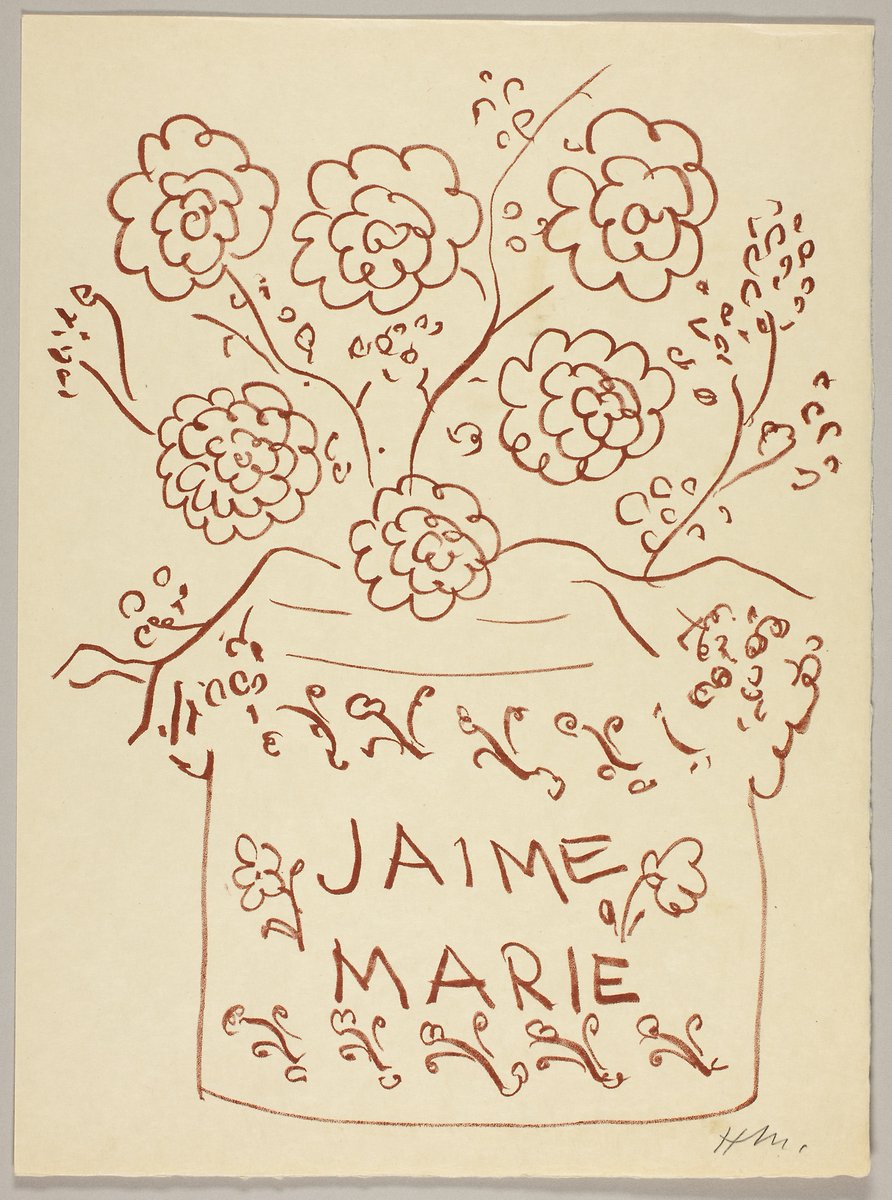 JAIME
MARIE
HM.